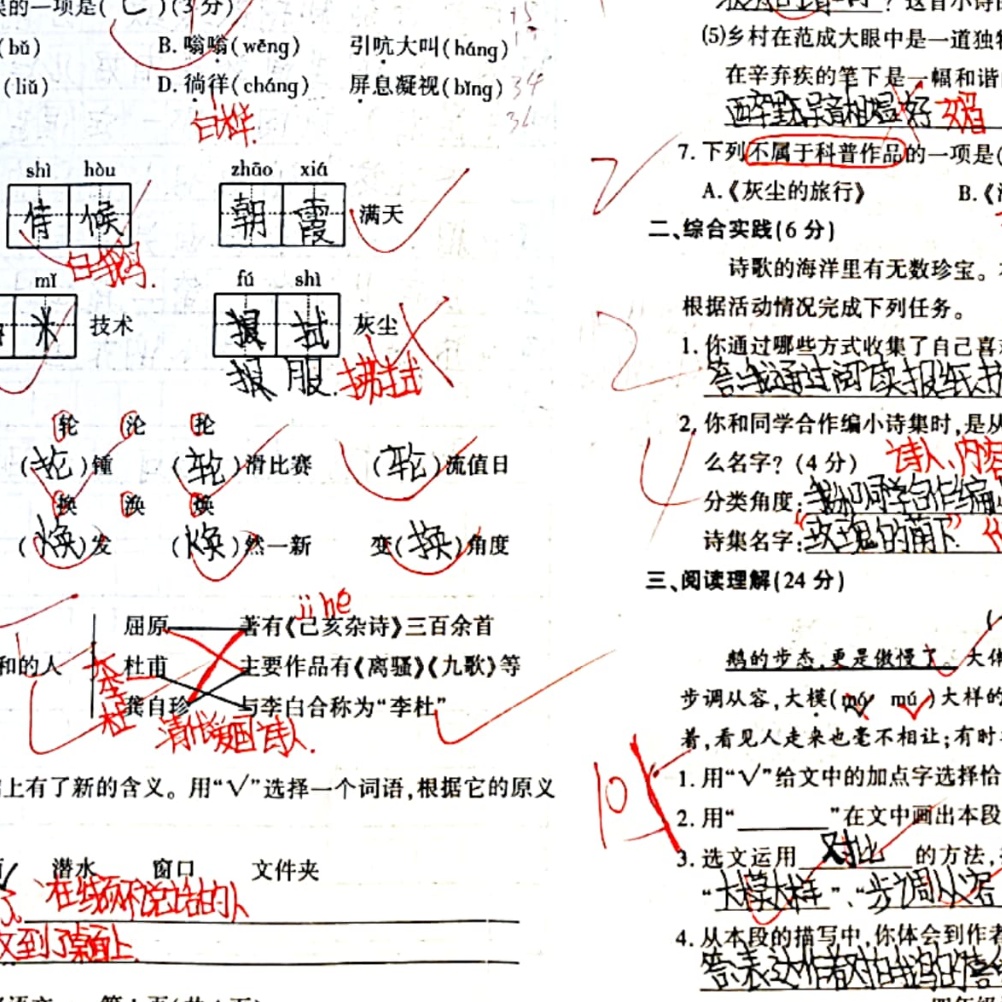 的一项是( C )(3分)
(bǔ) B.嗡嗡(wēng) 引吭大叫(háng)
(liǔ) D.徜徉(cháng) 屏息凝视(bǐng) 34
白桦
shì hòu zhāo xiá
侍候 朝霞 满天
白
mǐ fú shì
米 技术 狠拭 灰尘
狠 服 拂拭
轮 沦 抡
(抡)锤 (轮)滑比赛 (轮)流值日
换 涣 焕
(焕)发 (焕)然一新 变(换)角度
jǐ hé
屈原 著有《己亥杂诗》三百余首
和的人 杜甫 主要作品有《离骚》《九歌》等
李杜
龚自珍 与李白合称为“李杜”
清代爱国诗人.
上有了新的含义。用“√”选择一个词语,根据它的原义
潜水 窗口 文件夹
在线却不说话的人
到了桌面上
第1页(共4页)
?这首小诗
(5)乡村在范成大眼中是一道独
在辛弃疾的笔下是一幅和谐
醉里吴音相媚好 媚
7.下列不属于科普作品的一项是(
A.《灰尘的旅行》 B.《
二、综合实践(6分)
诗歌的海洋里有无数珍宝。
根据活动情况完成下列任务。
1.你通过哪些方式收集了自己喜
答:我通过阅读报纸书
2.你和同学合作编小诗集时,是从
么名字?(4分) 诗人、内容
分类角度:我和同学合作编
诗集名字:“玫瑰的”
三、阅读理解(24分)
鹅的步态,更是傲慢了。大体
步调从容,大模(mó mú)大样的
着,看见人走来也毫不相让;有时
10
1.用“√”给文中的加点字选择恰
2.用“______”在文中画出本段
3.选文运用 对比 的方法,
“大模大样”、“步调从容
4.从本段的描写中,你体会到作者
答:表达作者对白鹅的喜